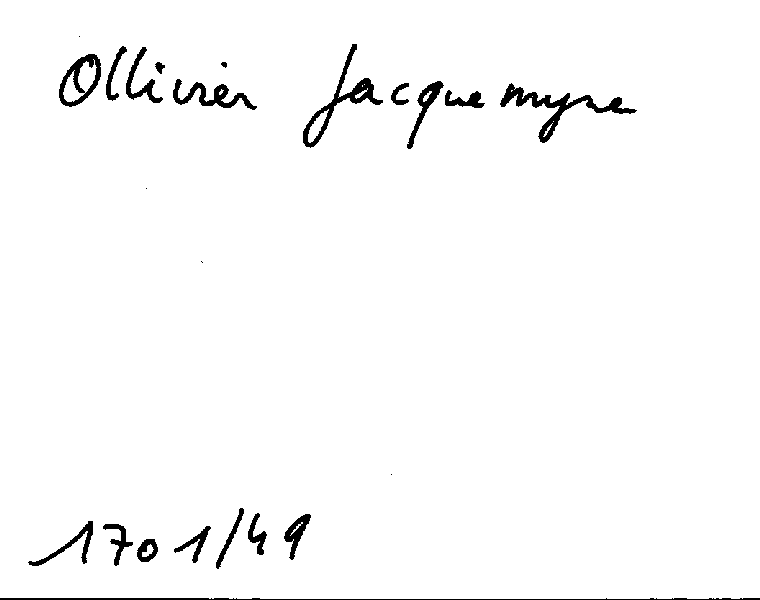 Ollivier Jacquemyne
1701/49